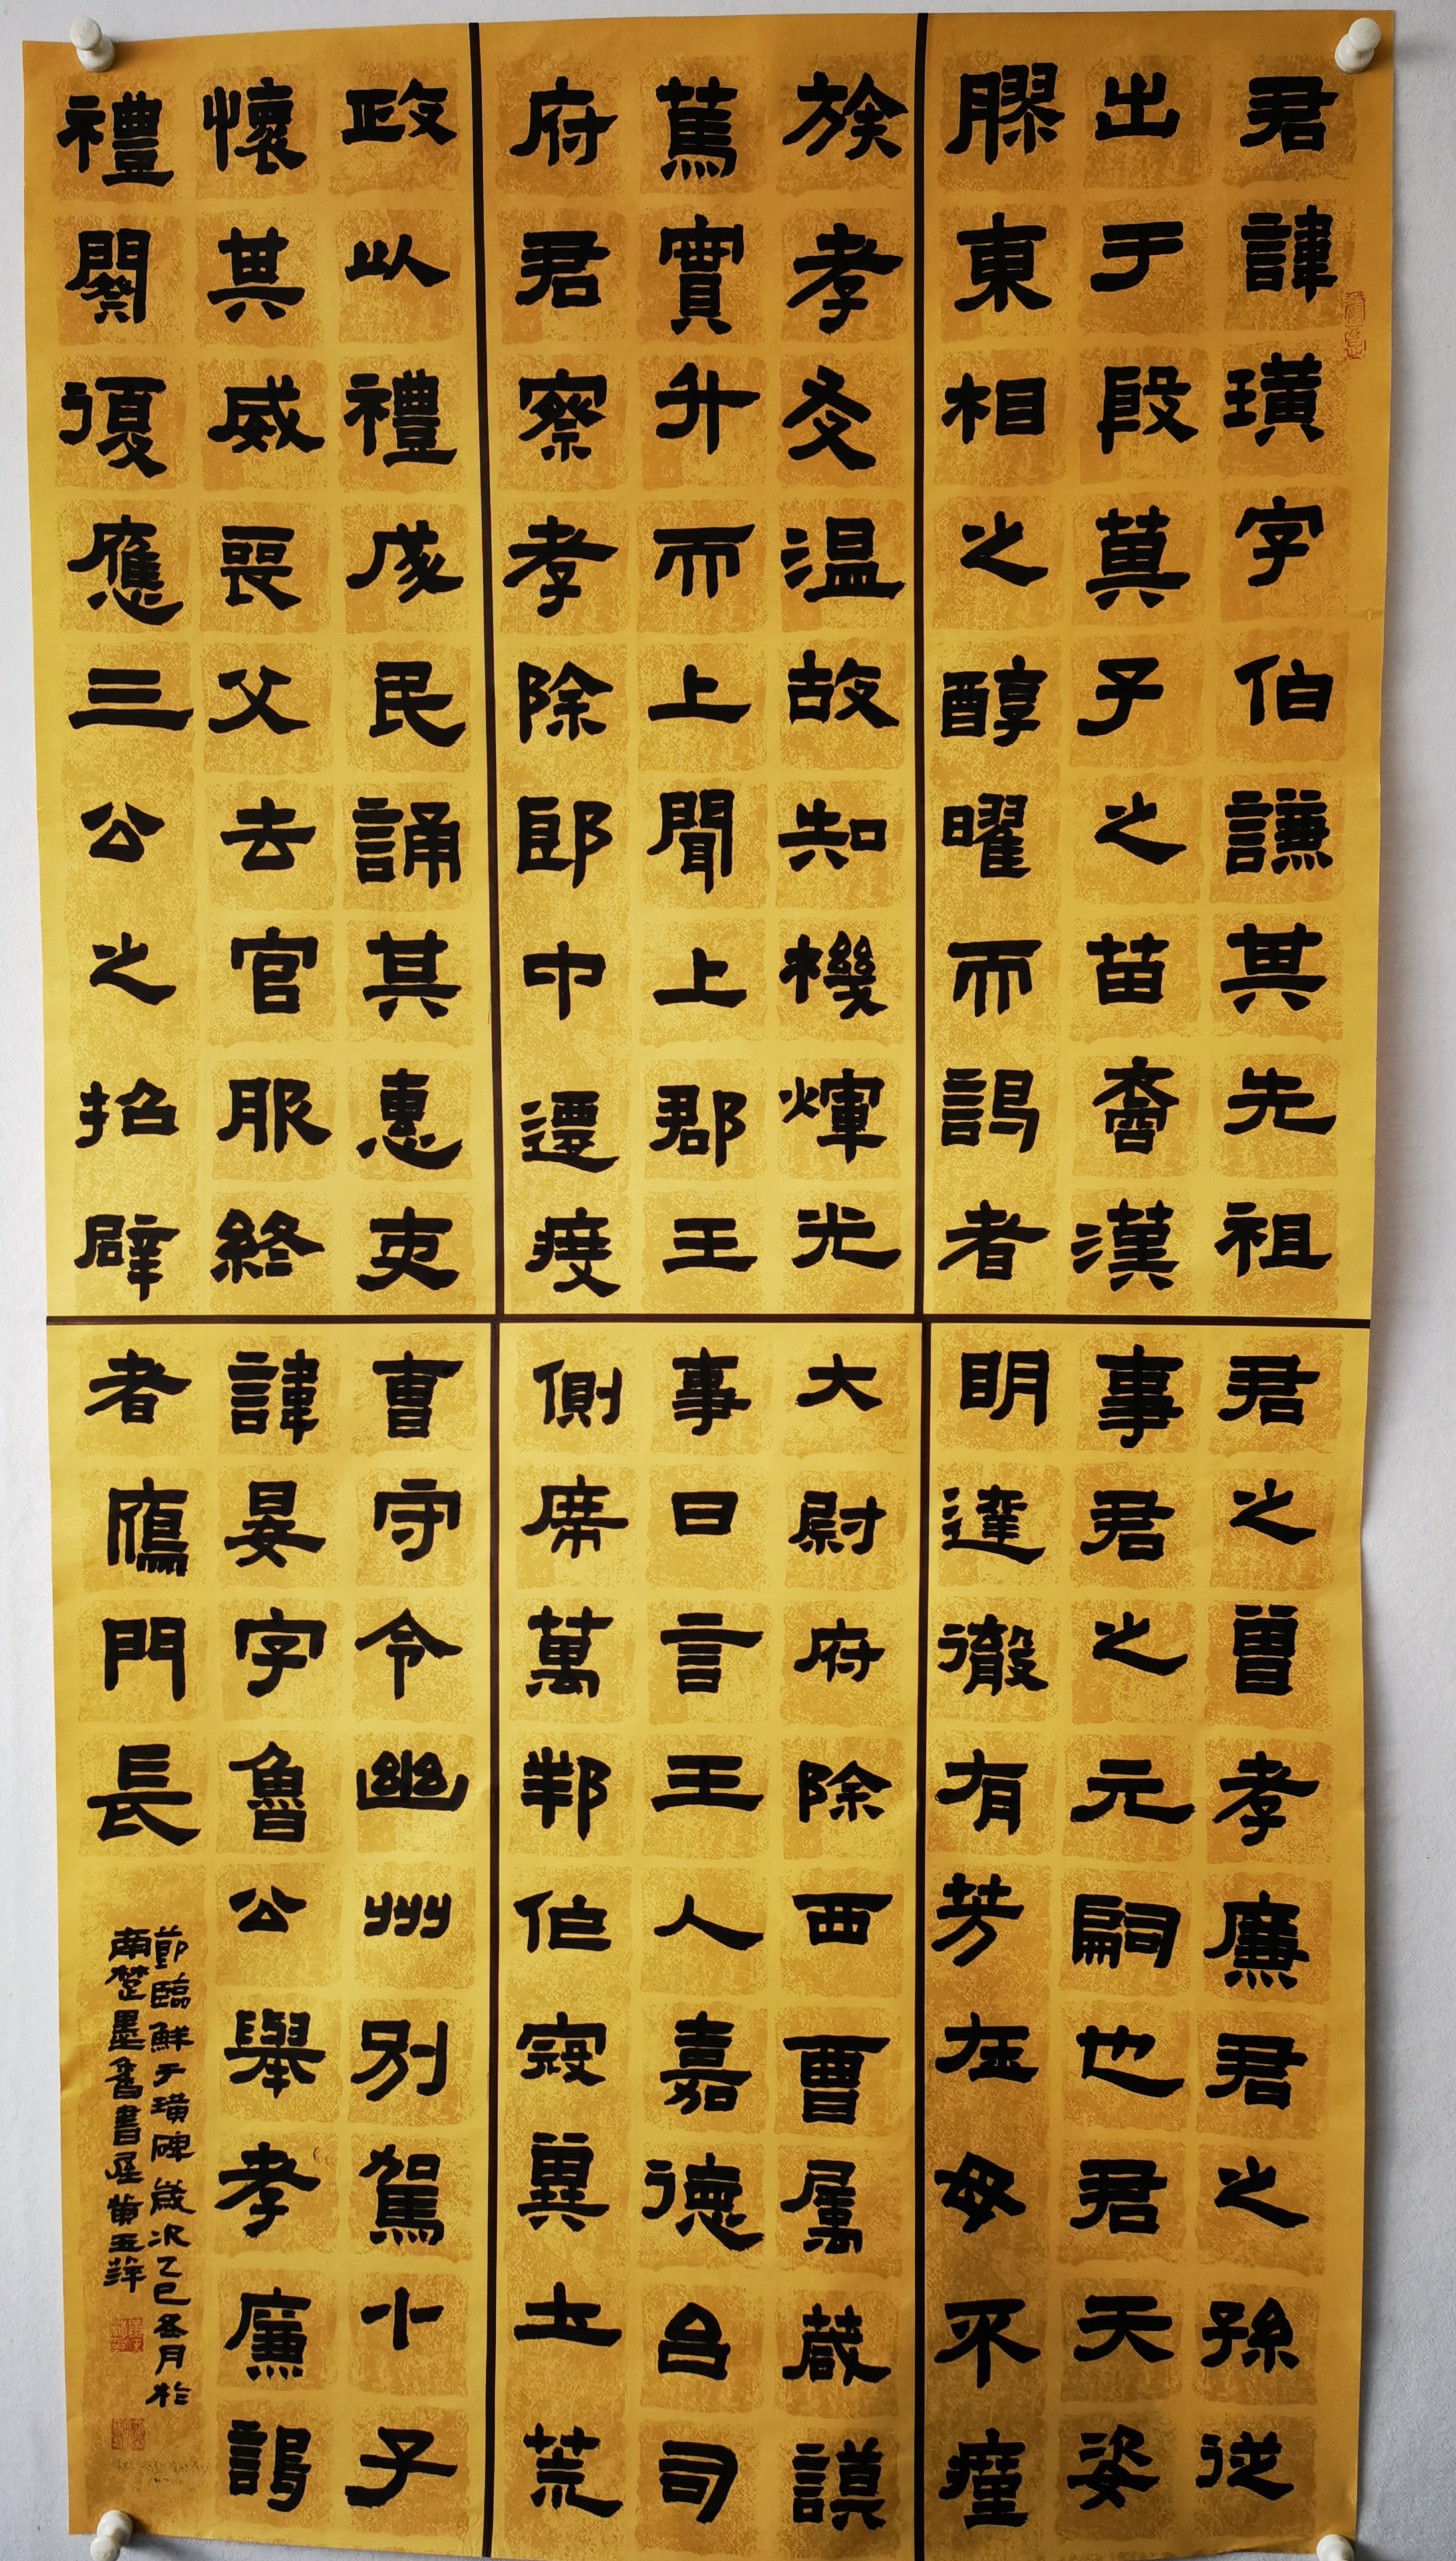 君諱璜字伯謙其先祖
出于殷箕子之苗裔漢
膠東相之醇曜而謁者
君之曾孝廉君之孫從
事君之元嗣也君天姿
明達徹有芳在母不瘇
族孝友温故知機煇光
篤實升而上聞上郡王
府君察孝除郎中遷度
大尉府除西曹屬蕆謨
事日言王人嘉德台司
側席萬邦作寇冀土荒
政以禮成民誦其惠吏
懷其威喪父去官服終
禮闋復應三公之招辟
曹守令幽州別駕十子
諱晏字魯公舉孝廉謁
者鴈門長
節臨鮮于璜碑歲次乙巳冬月於
南楚墨香書屋黃玉萍